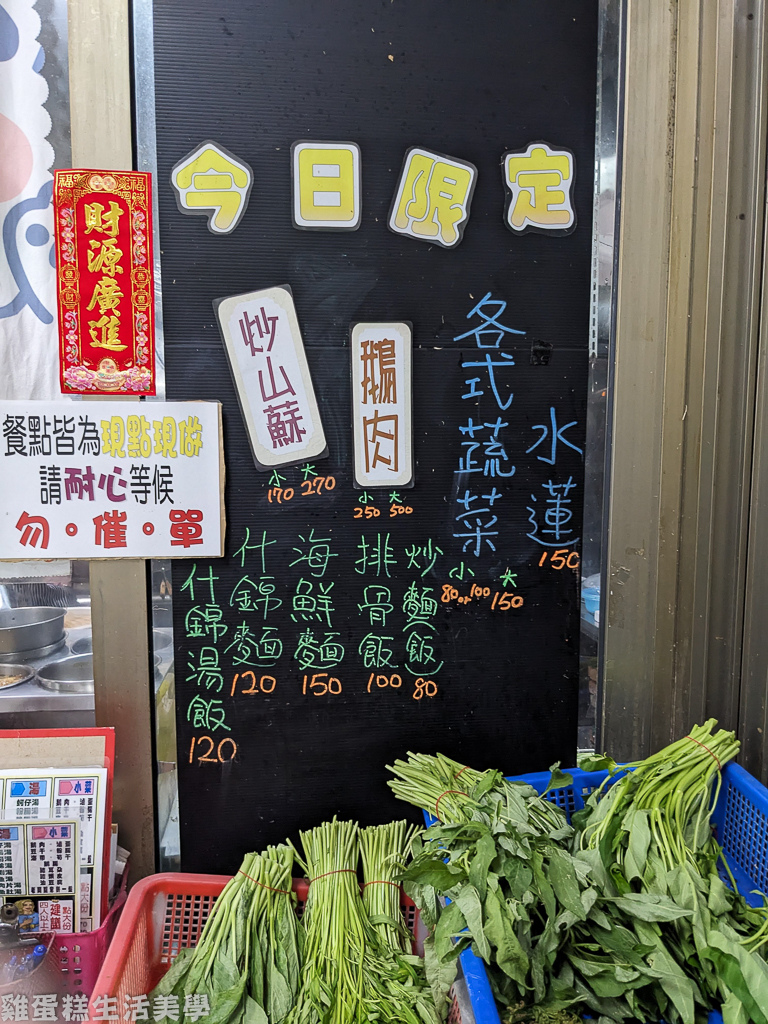 今日限定
財源廣進
餐點皆為現點現做
請耐心等候
勿。催。單
炒山蘇
小 大
170 270
鵝肉
小 大
250 500
各式蔬菜
小 大
80or100 150
水蓮
150
炒麵(飯)
80
排骨飯
100
海鮮麵
150
什錦麵
120
什錦湯飯
120
湯
蚵仔湯
小菜
小菜
四人以上
建議
點大份
雞蛋糕生活美學